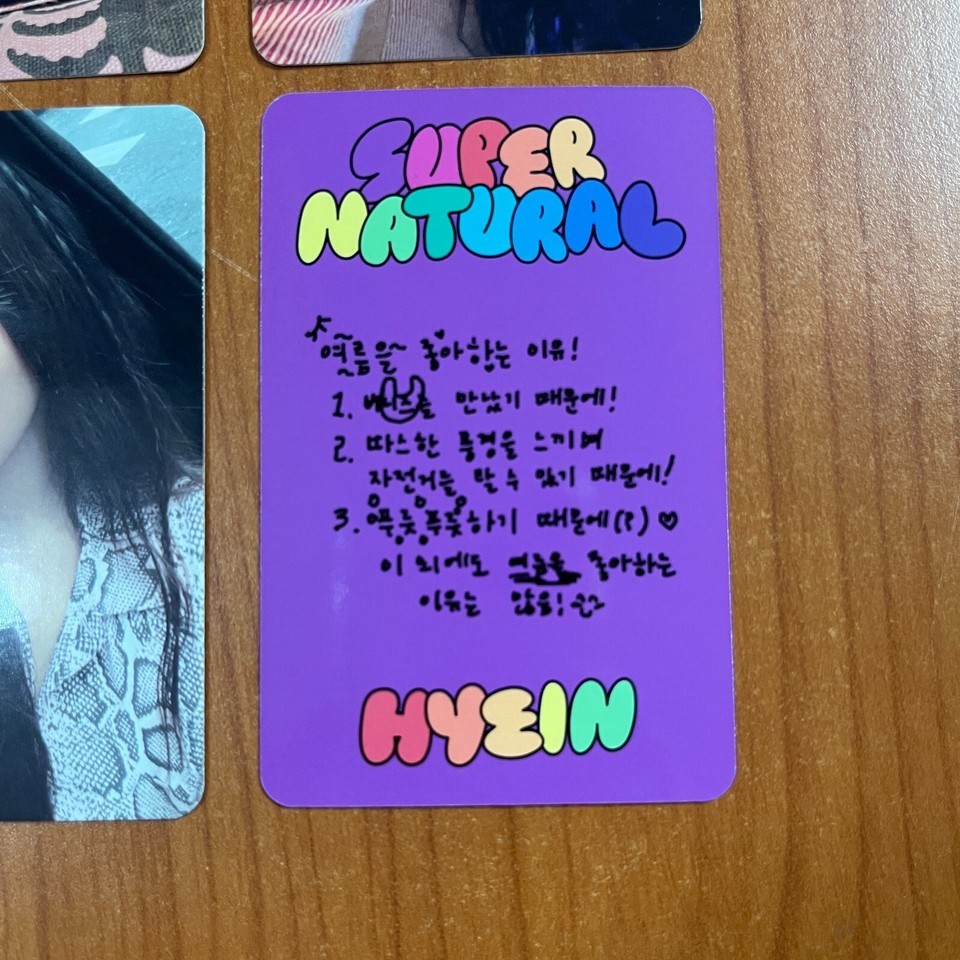 SUPER
NATURAL
여름을~ 좋아하는 이유!
1. 버니즈를 만났기 때문에!
2. 따스한 풍경을 느끼며
자전거를 탈 수 있기 때문에!
3. 하기 때문에(?) ♡
이 외에도 여름을 좋아하는
이유는 많음!
HYEIN